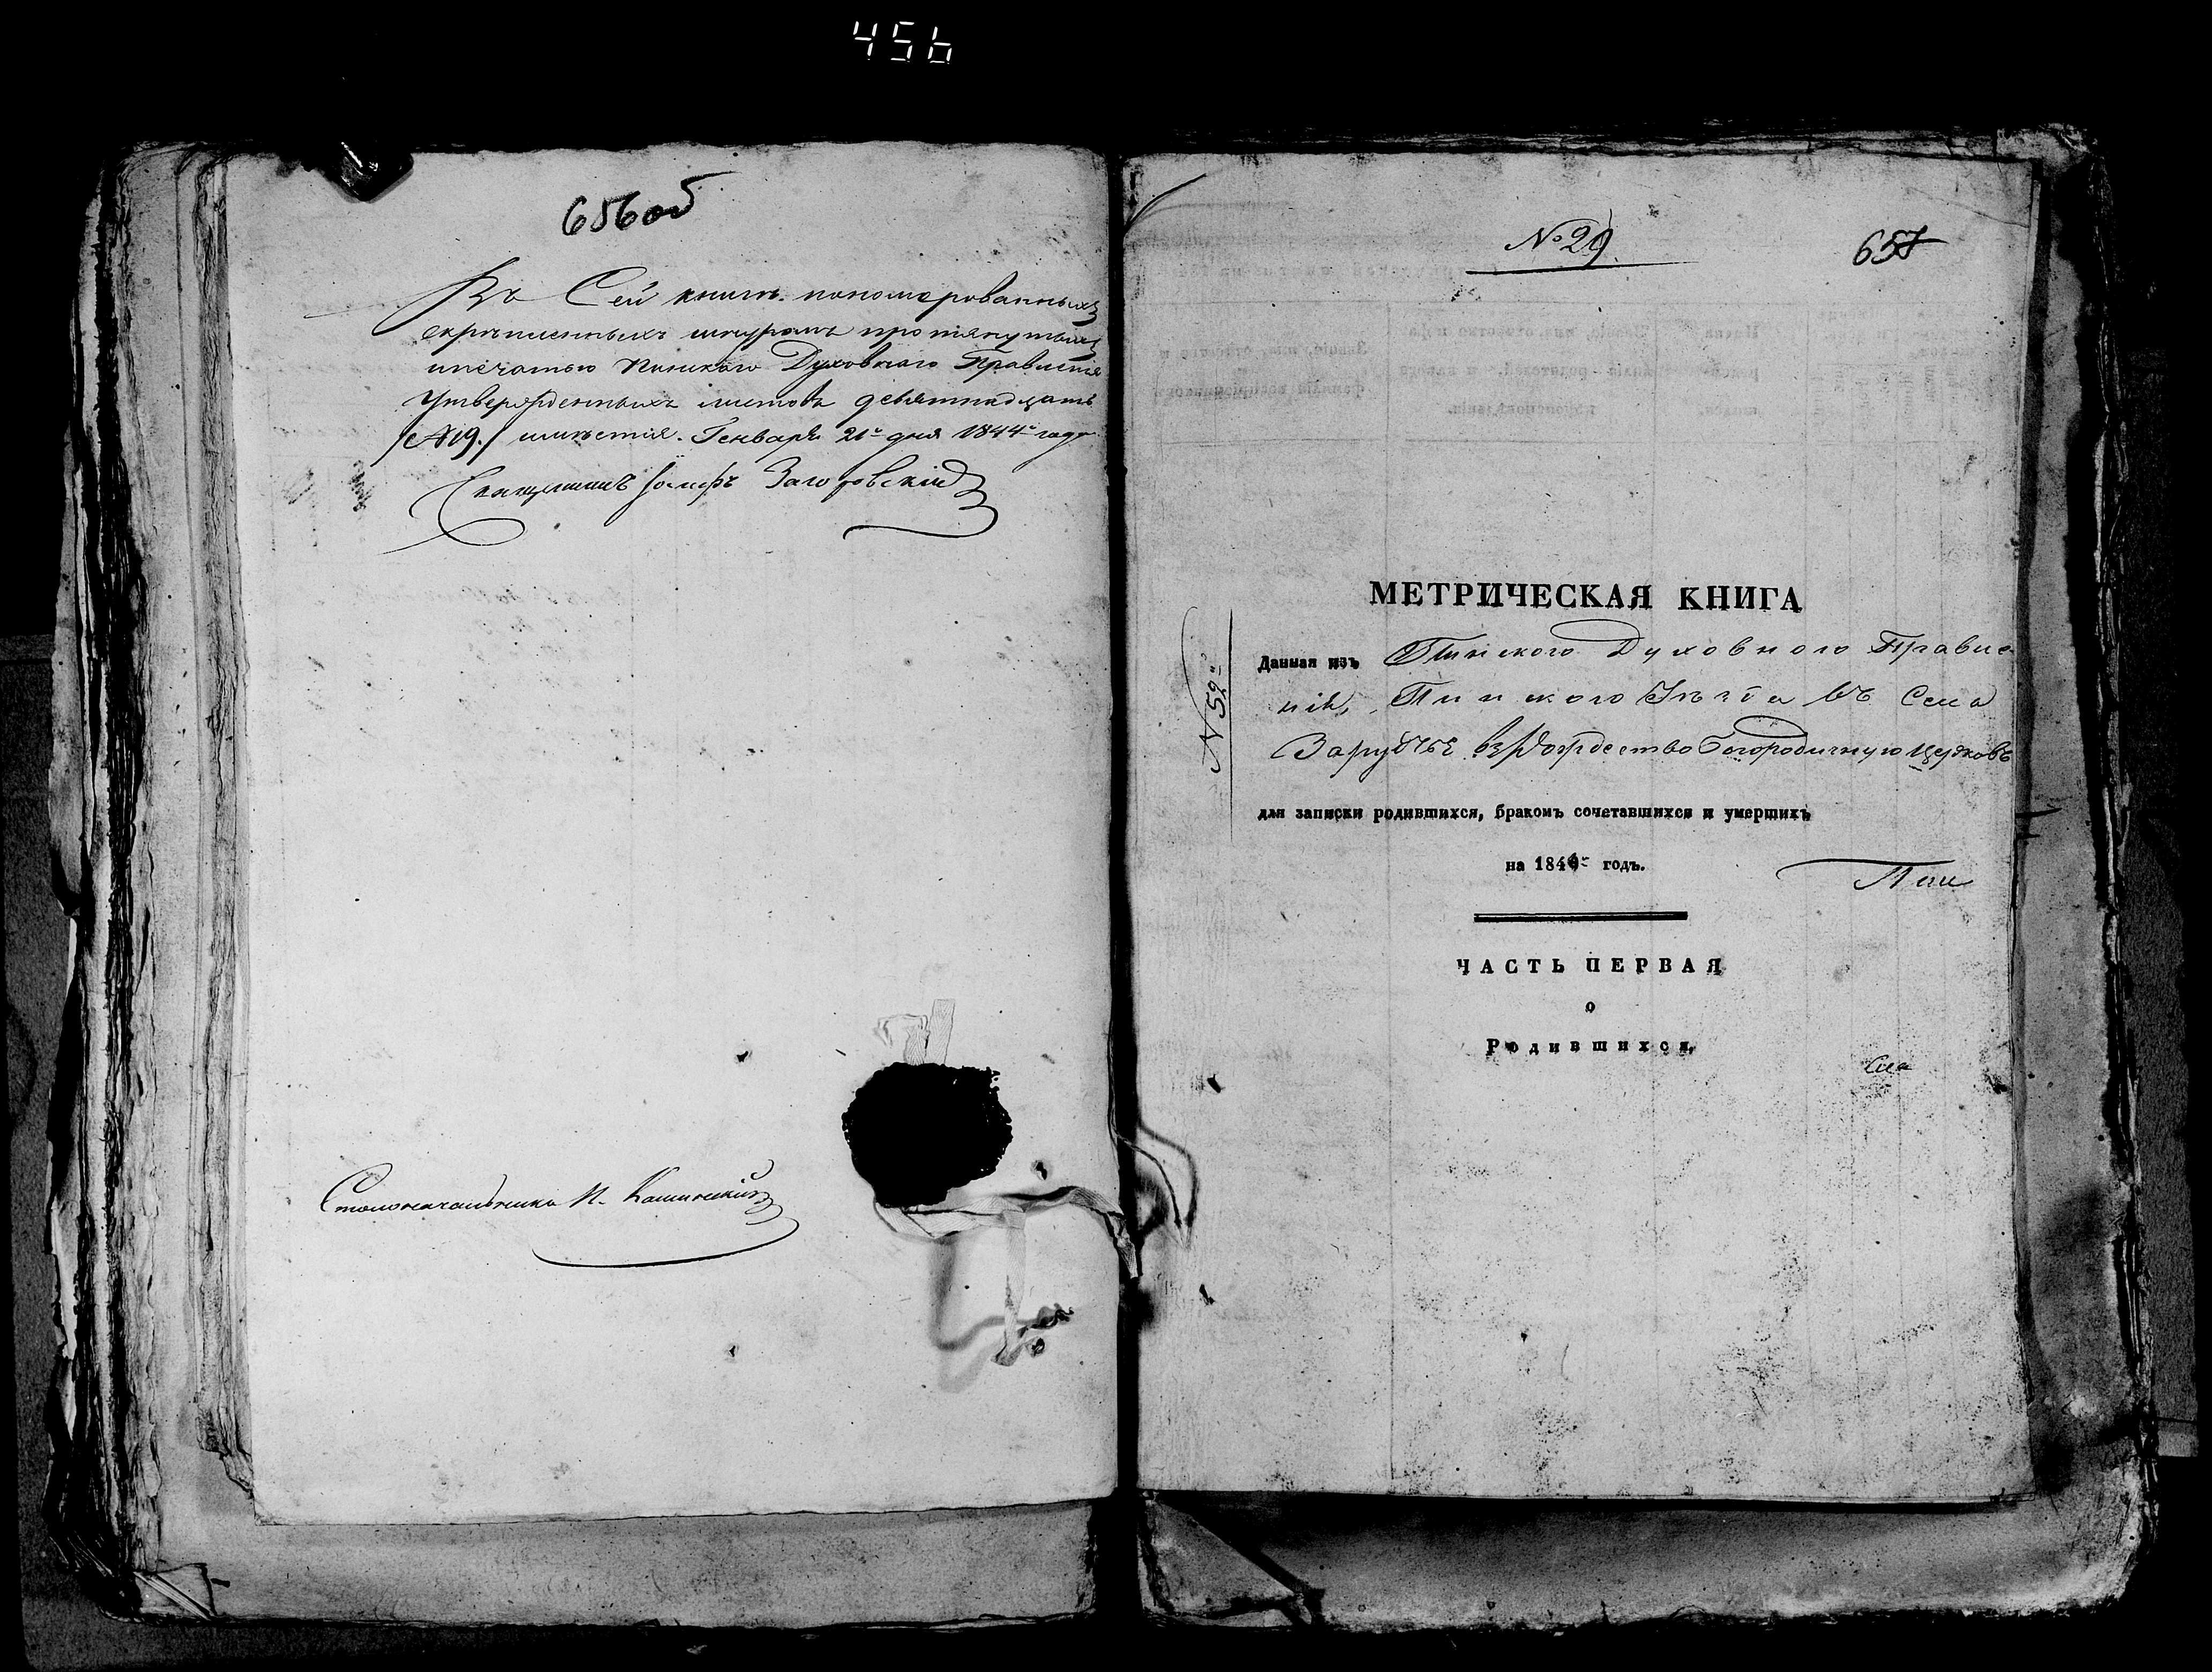 456
656об
Въ Сей книгѣ пономерованныхъ
скрѣпленныхъ шнуромъ протянутыхъ
ипечатью Пинскаго Духовнаго Правленія
Утвержденныхъ листовъ девятнадцать
/№19./ имѣется. Генваря 21го дня 1844го года
Священникъ Іосифъ Загоровскій
Столоначальникъ И. Калинскій
№29.
657
МЕТРИЧЕСКАЯ КНИГА
Данная изъ Пинского Духовного Правле
нія, Пинского Уѣзда въ Села
Заручье въ Рождество Богородичную Церковь
№52й
для записки родившихся, бракомъ сочетавшихся и умершихъ
на 1844й годъ.
Пин
ЧАСТЬ ПЕРВАЯ
о
Родившихся,